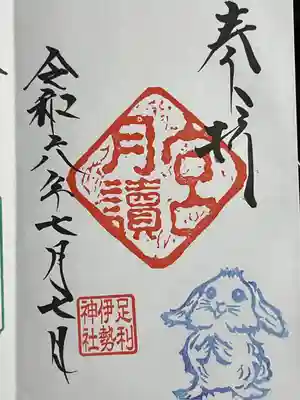 奉拝
月讀宮
令和六年七月七日
足利
伊勢
神社